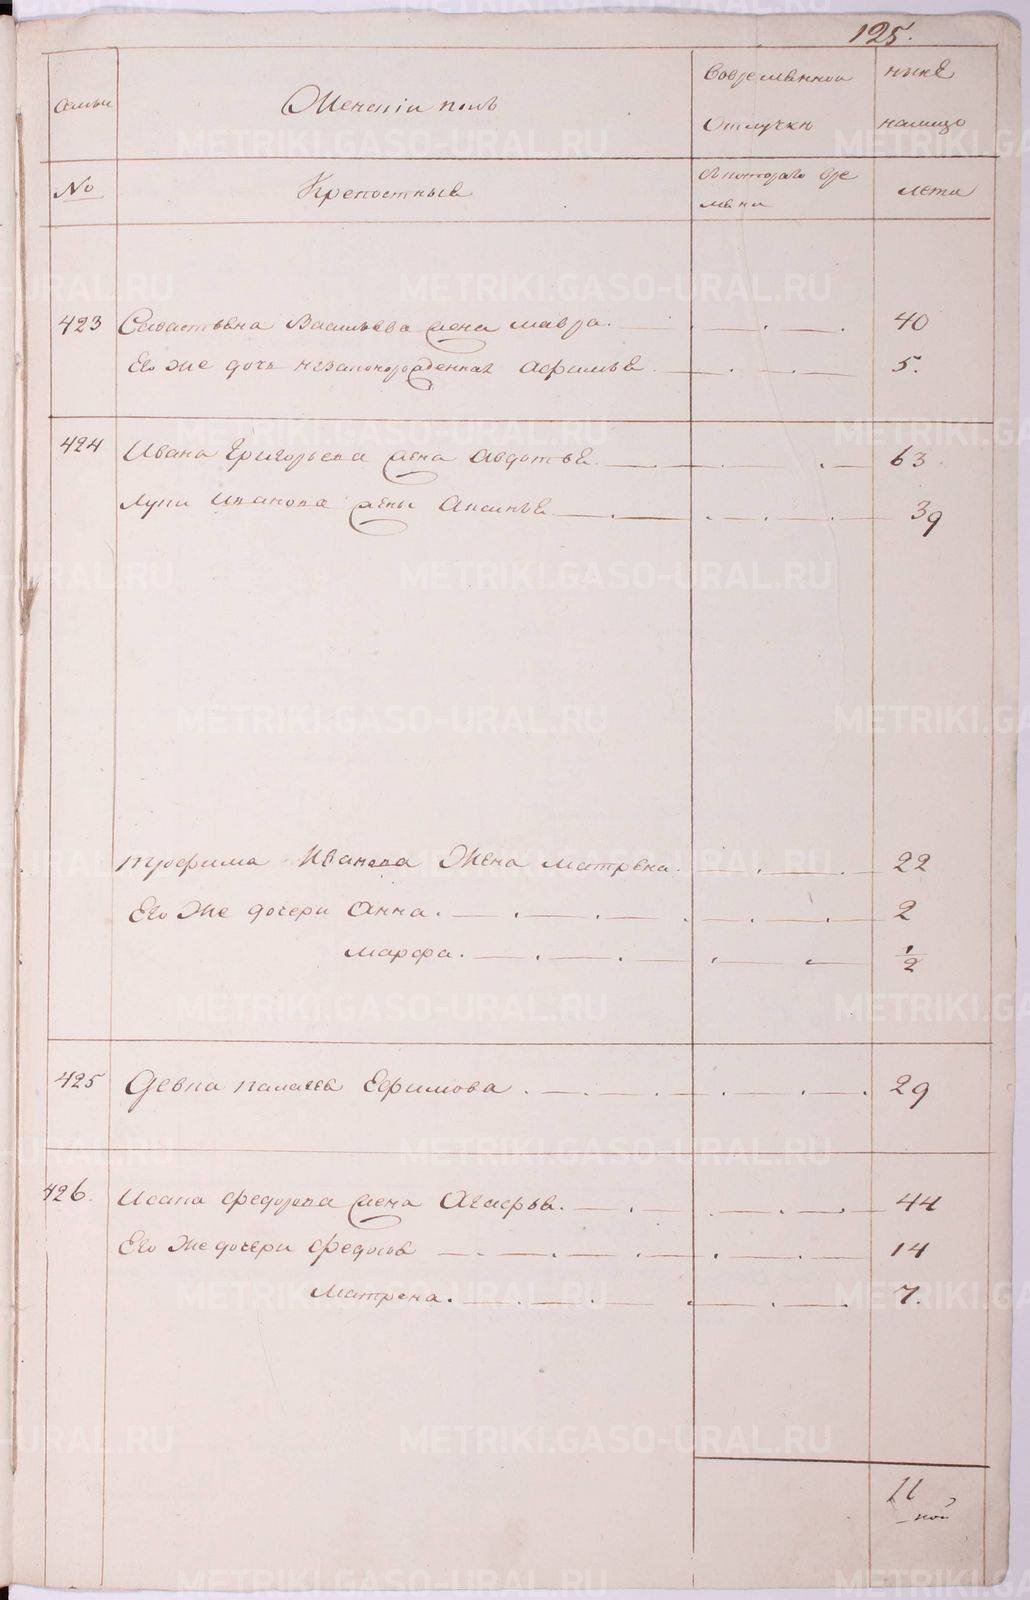 125.
Семьи
Женский полъ
Во временной
ныне
Отлучки
налицо
No
Крепостные
Съ котораго вре
мени
лета
423 Савастьена Васильева жена мавра. 40
Его же дочь незаконорожденная Афимье 5.
424 Ивана Григорьева жена Авдотье 63
Луки Иванова жены Аксинье 39
трофима Иванова Жена матрена. 22
Его Же дочери Анна. 2
марфа. 1/2
425 Девка палагея Ефимова 29
426. Исака федорова жена Агафье. 44
Его Же дочери Федосье 14
матрена. 7.
11
METRIKI.GASO-URAL.RU